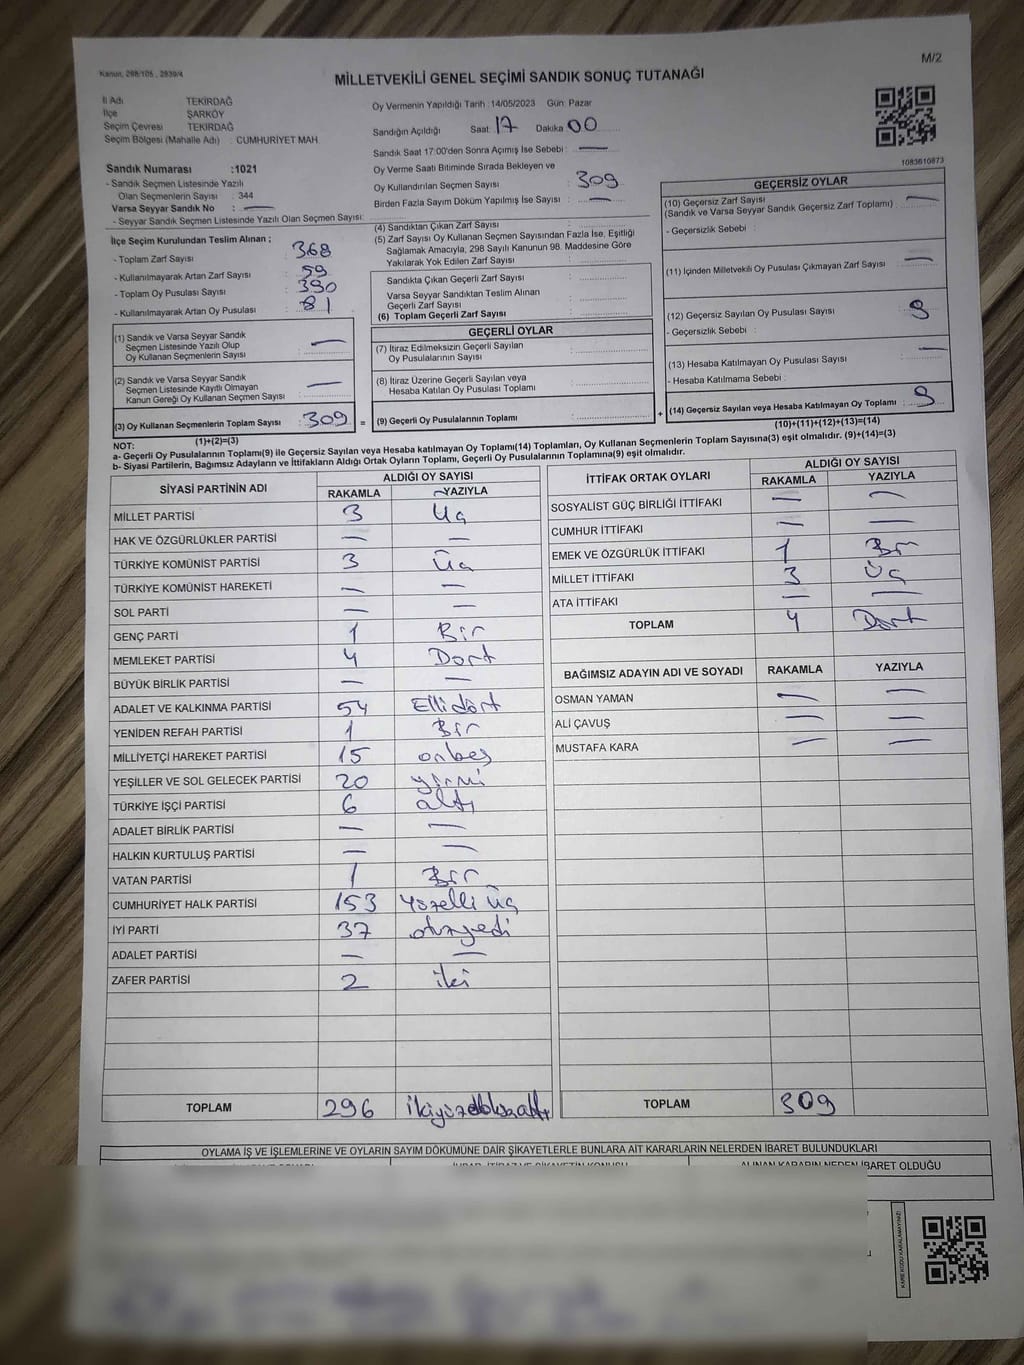 Kanun, 298/105 , 2839/4
M/2
MİLLETVEKİLİ GENEL SEÇİMİ SANDIK SONUÇ TUTANAĞI
İl Adı TEKİRDAĞ
İlçe ŞARKÖY
Seçim Çevresi TEKİRDAĞ
Seçim Bölgesi (Mahalle Adı) : CUMHURİYET MAH
Sandık Numarası :1021
- Sandık Seçmen Listesinde Yazılı
Olan Seçmenlerin Sayısı : 344
Varsa Seyyar Sandık No : —
- Seyyar Sandık Seçmen Listesinde Yazılı Olan Seçmen Sayısı:
Oy Vermenin Yapıldığı Tarih :14/05/2023 Gün: Pazar
Sandığın Açıldığı Saat: 17 Dakika 00
Sandık Saat 17:00'den Sonra Açımış İse Sebebi : —
Oy Verme Saati Bitiminde Sırada Bekleyen ve
Oy Kullandırılan Seçmen Sayısı : 309
Birden Fazla Sayım Döküm Yapılmış İse Sayısı : —
1083610873
İlçe Seçim Kurulundan Teslim Alınan ;
- Toplam Zarf Sayısı : 368
- Kullanılmayarak Artan Zarf Sayısı : 59
- Toplam Oy Pusulası Sayısı : 390
- Kullanılmayarak Artan Oy Pusulası : 81
(1) Sandık ve Varsa Seyyar Sandık
Seçmen Listesinde Yazılı Olup
Oy Kullanan Seçmenlerin Sayısı : —
(2) Sandık ve Varsa Seyyar Sandık
Seçmen Listesinde Kayıtlı Olmayan
Kanun Gereği Oy Kullanan Seçmen Sayısı : —
(3) Oy Kullanan Seçmenlerin Toplam Sayısı : 309
(1)+(2)=(3)
(4) Sandıktan Çıkan Zarf Sayısı :
(5) Zarf Sayısı Oy Kullanan Seçmen Sayısından Fazla İse, Eşitliği
Sağlamak Amacıyla, 298 Sayılı Kanunun 98. Maddesine Göre
Yakılarak Yok Edilen Zarf Sayısı :
Sandıkta Çıkan Geçerli Zarf Sayısı :
Varsa Seyyar Sandıktan Teslim Alınan
Geçerli Zarf Sayısı :
(6) Toplam Geçerli Zarf Sayısı :
GEÇERLİ OYLAR
(7) İtiraz Edilmeksizin Geçerli Sayılan
Oy Pusulalarının Sayısı :
(8) İtiraz Üzerine Geçerli Sayılan veya
Hesaba Katılan Oy Pusulası Toplamı :
= (9) Geçerli Oy Pusulalarının Toplamı : +
GEÇERSİZ OYLAR
(10) Geçersiz Zarf Sayısı : —
(Sandık ve Varsa Seyyar Sandık Geçersiz Zarf Toplamı)
- Geçersizlik Sebebi :
(11) İçinden Milletvekili Oy Pusulası Çıkmayan Zarf Sayısı : —
(12) Geçersiz Sayılan Oy Pusulası Sayısı : 9
- Geçersizlik Sebebi :
(13) Hesaba Katılmayan Oy Pusulası Sayısı : —
- Hesaba Katılmama Sebebi :
(14) Geçersiz Sayılan veya Hesaba Katılmayan Oy Toplamı : 9
(10)+(11)+(12)+(13)=(14)
NOT:
a- Geçerli Oy Pusulalarının Toplamı(9) ile Geçersiz Sayılan veya Hesaba katılmayan Oy Toplamı(14) Toplamları, Oy Kullanan Seçmenlerin Toplam Sayısına(3) eşit olmalıdır. (9)+(14)=(3)
b- Siyasi Partilerin, Bağımsız Adayların ve İttifakların Aldığı Ortak Oyların Toplamı, Geçerli Oy Pusulalarının Toplamına(9) eşit olmalıdır.
SİYASİ PARTİNİN ADI ALDIĞI OY SAYISI
RAKAMLA YAZIYLA
MİLLET PARTİSİ 3 Üç
HAK VE ÖZGÜRLÜKLER PARTİSİ — —
TÜRKİYE KOMÜNİST PARTİSİ 3 Üç
TÜRKİYE KOMÜNİST HAREKETİ — —
SOL PARTİ — —
GENÇ PARTİ 1 Bir
MEMLEKET PARTİSİ 4 Dört
BÜYÜK BİRLİK PARTİSİ — —
ADALET VE KALKINMA PARTİSİ 54 Ellidört
YENİDEN REFAH PARTİSİ 1 Bir
MİLLİYETÇİ HAREKET PARTİSİ 15 onbeş
YEŞİLLER VE SOL GELECEK PARTİSİ 20 yirmi
TÜRKİYE İŞÇİ PARTİSİ 6 altı
ADALET BİRLİK PARTİSİ — —
HALKIN KURTULUŞ PARTİSİ — —
VATAN PARTİSİ 1 Bir
CUMHURİYET HALK PARTİSİ 153 Yüzelli üç
İYİ PARTİ 37 otuzyedi
ADALET PARTİSİ — —
ZAFER PARTİSİ 2 iki
TOPLAM 296 ikiyüzdoksanaltı
İTTİFAK ORTAK OYLARI ALDIĞI OY SAYISI
RAKAMLA YAZIYLA
SOSYALİST GÜÇ BİRLİĞİ İTTİFAKI — —
CUMHUR İTTİFAKI — —
EMEK VE ÖZGÜRLÜK İTTİFAKI 1 Bir
MİLLET İTTİFAKI 3 Üç
ATA İTTİFAKI — —
TOPLAM 4 Dört
BAĞIMSIZ ADAYIN ADI VE SOYADI RAKAMLA YAZIYLA
OSMAN YAMAN — —
ALİ ÇAVUŞ — —
MUSTAFA KARA — —
TOPLAM 309
OYLAMA İŞ VE İŞLEMLERİNE VE OYLARIN SAYIM DÖKÜMÜNE DAİR ŞİKAYETLERLE BUNLARA AİT KARARLARIN NELERDEN İBARET BULUNDUKLARI
ALINAN KARARIN NEDEN İBARET OLDUĞU
KARE KODU KARALAMAYINIZ!